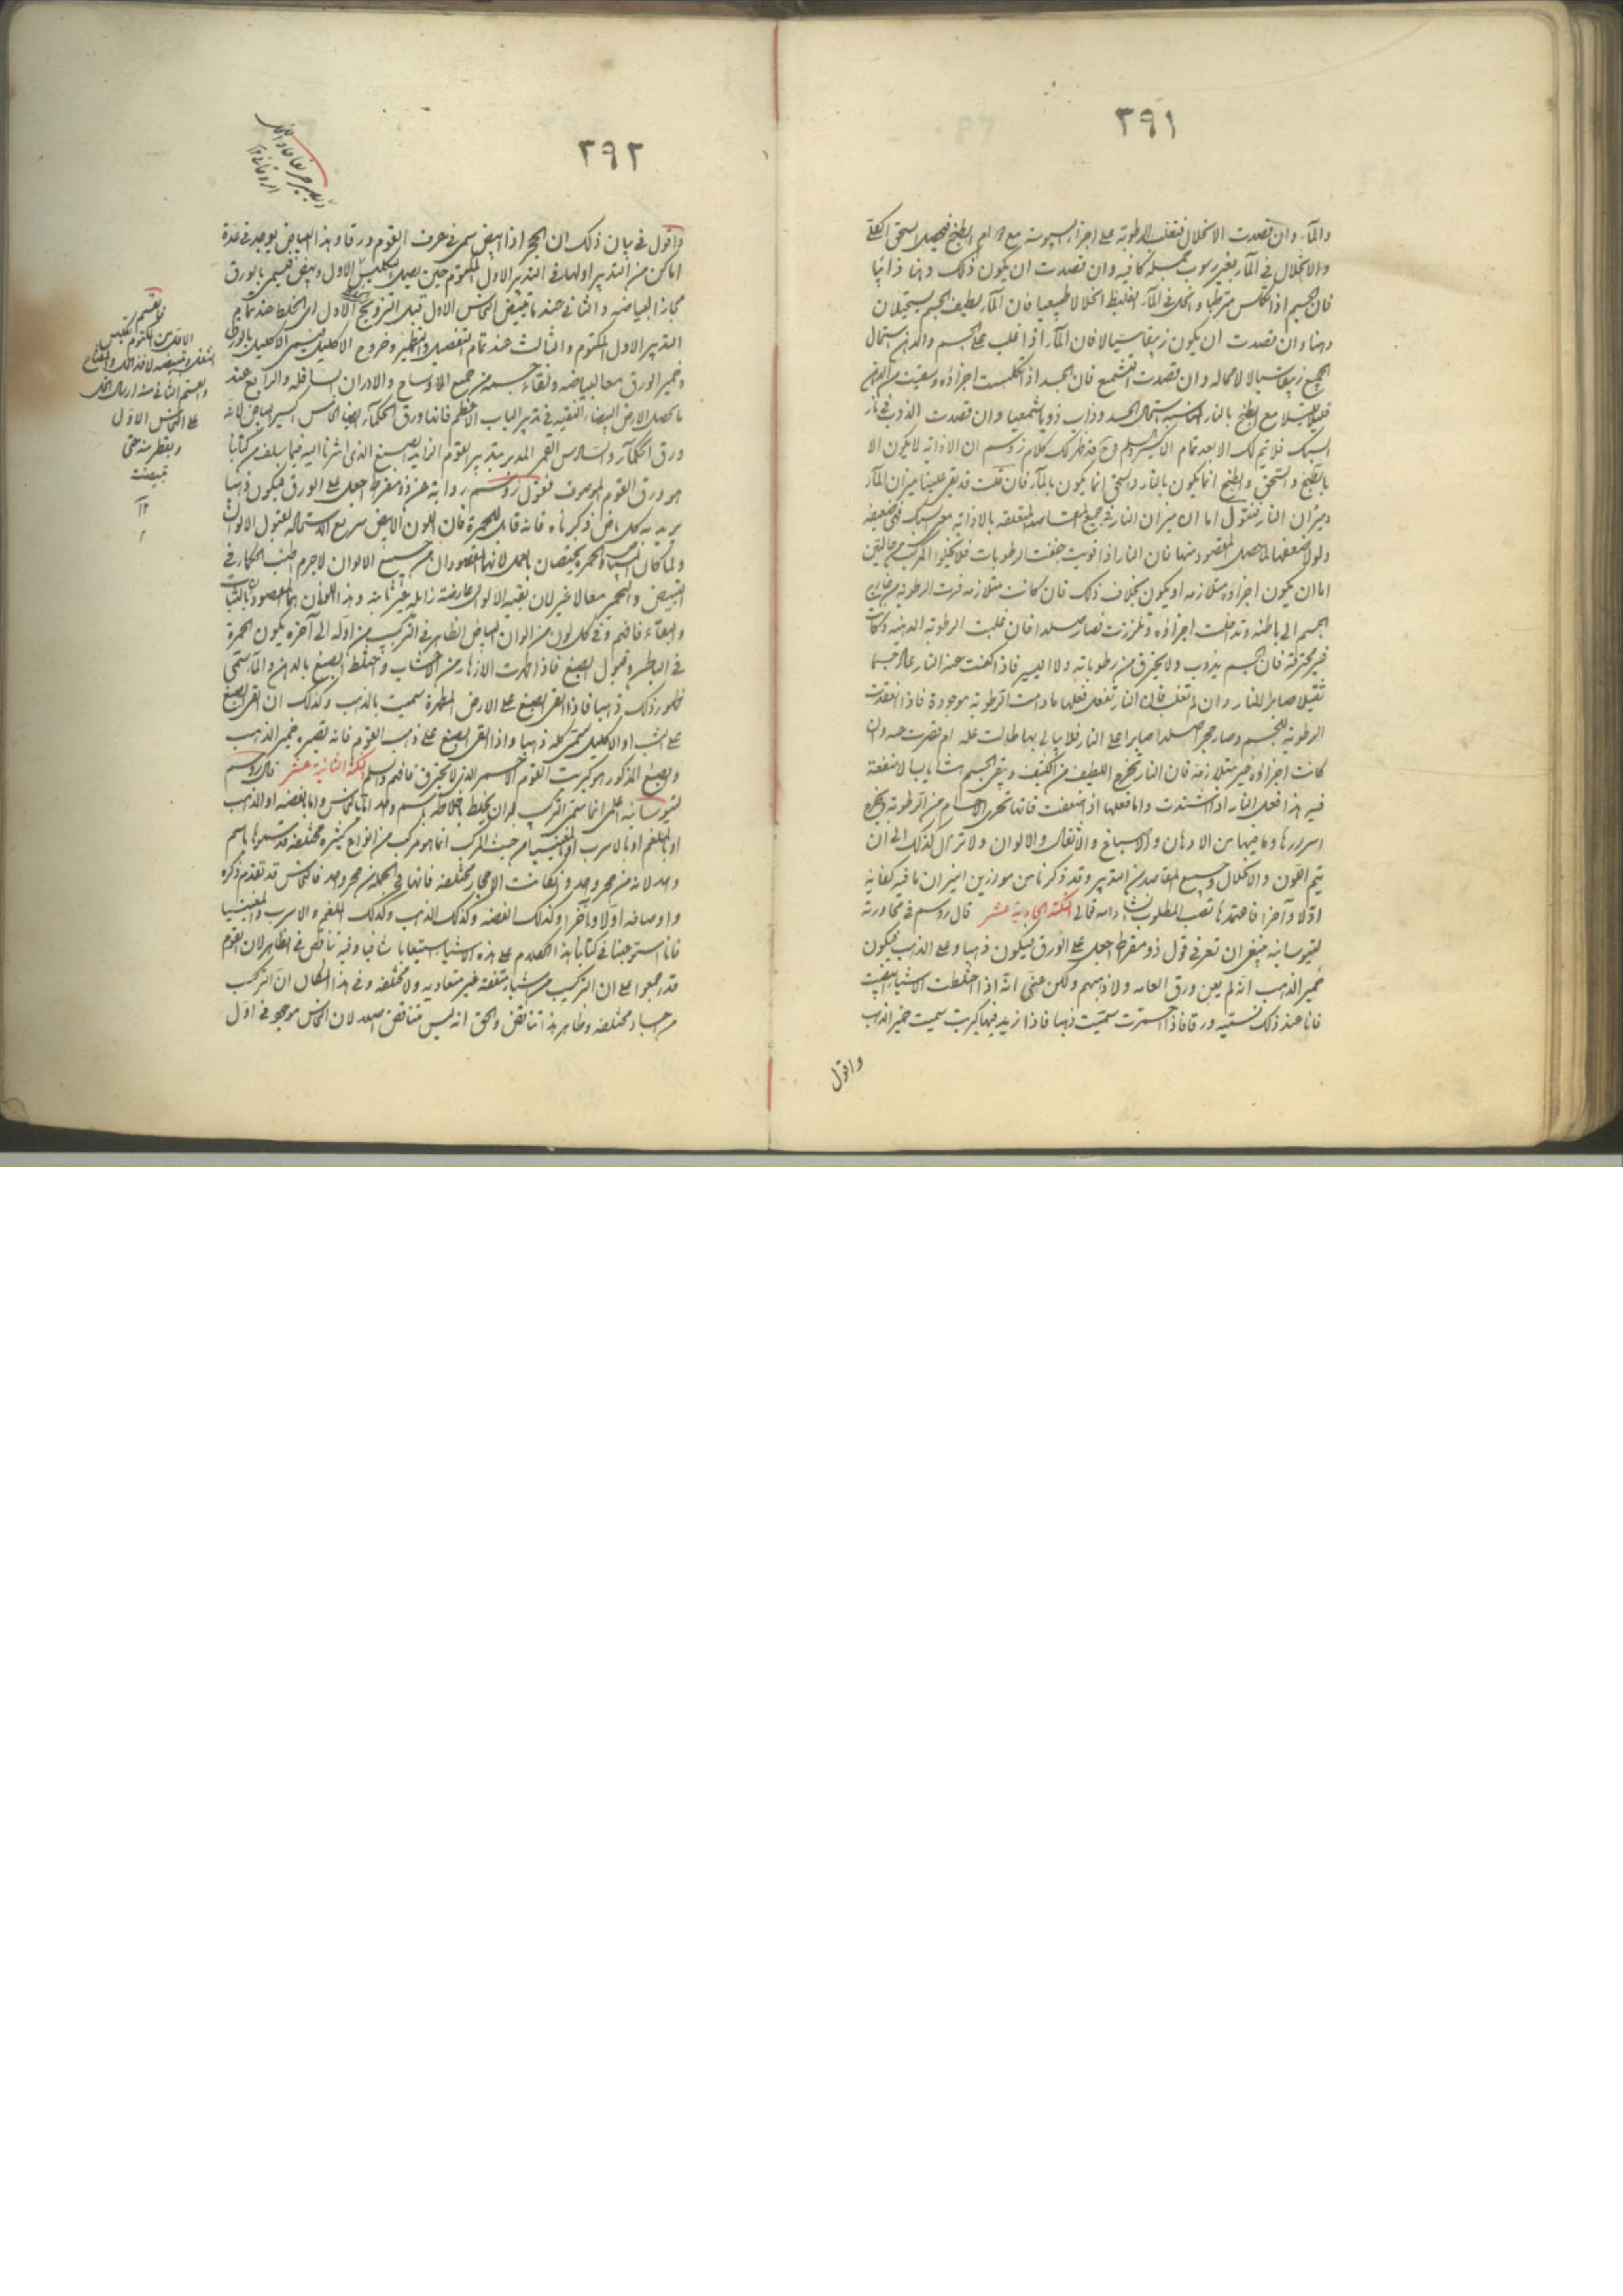 ٣٩١
والمآء وان قصدت الانحلال فتغلب الرطوبة على اجزاء اليبوسة مع الطبخ فيحصل السحق الكلى
والانحلال فى المآء بغير رسوب بجملة كافيه وان قصدت ان يكون ذلك دهنا ذائبا
فان الجسم اذا تكلس مترطبا وانحل فى المآء الغليظ انحلالا طبيعيا فان المآء بلطيف الجسم يستحيلان
دهنا وان قصدت ان يكون زيبقا سيالا فان المآء اذا غلب على الجسم والدهن استحال
الجميع زيبقا سيالا لا محاله وان قصدت التشميع فان الجسد اذا تكلست اجزاؤه وسقيت من الدهن
قليلا قليلا مع الطبخ بالنار استحال الجسد وذاب ذوبا شمعيا وان قصدت الذوب فى نار
السبك فلا يتم لك الا بعد تمام الاكسير واعلم وقد ظهر لك كلام زوسم ان الاذابة لا يكون الا
بالطبخ والسحق والطبخ انما يكون بالنار والسحق انما يكون بالمآء فان قلت قد بقى علينا ميزان المآء
وميزان النار فنقول اما ان ميزان النار فى جميع المقاصد المتعلقه بالاذابه بغير سبك فهى ضعيفه
ولولا ضعفها لما حصل المقصود منها فان النار اذا قويت جففت الرطوبات فلا يخلوا المركب من حالتين
اما ان يكون اجزاؤه متلازمه او يكون بخلاف ذلك فان كانت متلازمه فرت الرطوبة من خارج
الجسم الى باطنه وتداخلت اجزاؤه وتلززت فصار صلدا فان غلبت الرطوبة الدهنيه وكانت
غير محترقة فان الجسم يذوب ولا يحترق من رطوباته ولا اليسير فاذا كفت عنه النار عاد جسما
ثقيلا صابرا للنار وان لم تغلب فان النار تفعل فعلها ما دامت الرطوبة موجودة فاذا انعقدت
الرطوبة للجسم وصار حجرا صلدا صابرا على النار فلا يبالى بها طالت عليه ام قصرت مدة وان
كانت اجزاؤه غير متلازمة فان النار تخرج اللطيف من الكثيف ويبقى الجسم يابسا لا منفعة
فيه هذا فعل النار اذا اشتدت واما فعلها اذا ضعفت فانها تحرى الاجسام من الرطوبة وتخرج
اسرارها وما فيها من الادهان والاصباغ والاثقال والالوان ولا تزال كذلك الى ان
يتم اللون والانحلال وجميع المقاصد من التدبير وقد ذكرنا من موازين النيران ما فيه كفاية
اولا وآخرا فاعتمدها تصب المطلوب ان شاء الله تعالى النكتة الحادية عشر قال زوسم فى محاورته
لثيوسابيه ينبغى ان تعرفى قول ذو مقراط اجعل على الورق فيكون ذهبا وعلى الذهب فيكون
خمير الذهب انه لم يعن ورق العامه ولا ذهبهم ولكن عنى انه اذا اختلطت الاشيا ابيضت
فانا عند ذلك نسميه ورقا فاذا احمرت سميت ذهبا فاذا زيد فيها كبريت سميت خمير الذهب
واقول
٣٩٢
واقول فى بيان ذلك ان الحجر اذا ابيض سمى فى عرف القوم ورقا وهذا البياض يوجد فى عدة
اماكن من التدبير اولها فى التدبير الاول المكتوم حين يصل التكليس الاول ويبيض فيسمى بالورق
مجازا لبياضه والثانى عند ما تبيض النحاس الاول قبل التزويج الاول اى الخلط عند تمام
التدبير الاول المكتوم والثالث عند تمام التفصيل والتطهير وخروج الاكليل فيسمى الاكليل بالورق
وخمير الورق معا لبياضه ونقاء جسمه من جميع الاوساخ والادران السافله والرابع عند
ما تحصل الارض البيضاء النقيه فى تدبير الباب الاعظم فانها ورق الحكمآء ايضا الخامس اكسير البياض لانه
ورق الحكمآء والسادس القمر المدبر بتدبير القوم الزايد الصبغ الذى اشرنا اليه فيما سلف من كتابنا
هو ورق القوم الموصوف فقول زوسم رواية عن ذو مقراط اجعل على الورق فيكون ذهبا
يريد به كل بياض ذكرناه فانه قابل للحمرة فان اللون الابيض سريع الاستحاله لقبول الالوان
ولما كان البياض والحمره يختصان بالعمل لانها المقصودان من جميع الالوان لاجرم طلب الحكماء فى
التبييض والتحمير معا لا غير لان بقية الالوان عارضة زائله غير ثابتة وهذان اللونان هما المقصود بالثبات
والبقآء فافهم وفى كل لون من الوان البياض الظاهر فى التركيب من اوله الى آخره يكون الحمرة
فى الباطن وقبول الصبغ فاذا ظهرت الازهار من الاعشاب واختلط الصبغ بالدهن والمآء سمى
ظهور ذلك ذهبا فاذا القى الصبغ على الارض المطهرة سميت بالذهب وكذلك ان القى الصبغ
على الشب او الاكليل سمى كله ذهبا واذا القى الصبغ على ذهب القوم فانه يصيره خمير الذهب
والصبغ المذكور هو كبريت القوم الاحمر الذى لا يحترق فافهم واعلم النكتة الثانية عشر قال زوسم
لثيوسابيه اعلمى انما سمى التركيب قبل ان يختلط اخلاطه باسم واحد اما بالنحاس واما بالفضه او الذهب
او بالملغم او بالاسرب او المغنيسيا من حيث المركب انما هو مركب من انواع كثيره مختلفه قد سموها باسم
واحد لانه من حجر واحد وان كانت الاحجار مختلفه فانها فى الجمله من حجر واحد فالنحاس قد تقدم ذكره
واوصافه اولا وآخرا وكذلك الفضه وكذلك الذهب وكذلك الملغم والاسرب والمغنيسيا
فانا استوعبنا فى كتابنا هذا الكلام على هذه الاشيا استيعابا شافيا وفيه تناقض فى الظاهر لان القوم
قد اجمعوا على ان التركيب من اشياء متفقة غير متعاديه ولا مختلفه وفى هذا المكان ان التركيب
من اجساد مختلفه وظاهر هذا تناقض والحق انه ليس متناقض اصلا لان النحاس موجود فى اول
على النحاس الاول